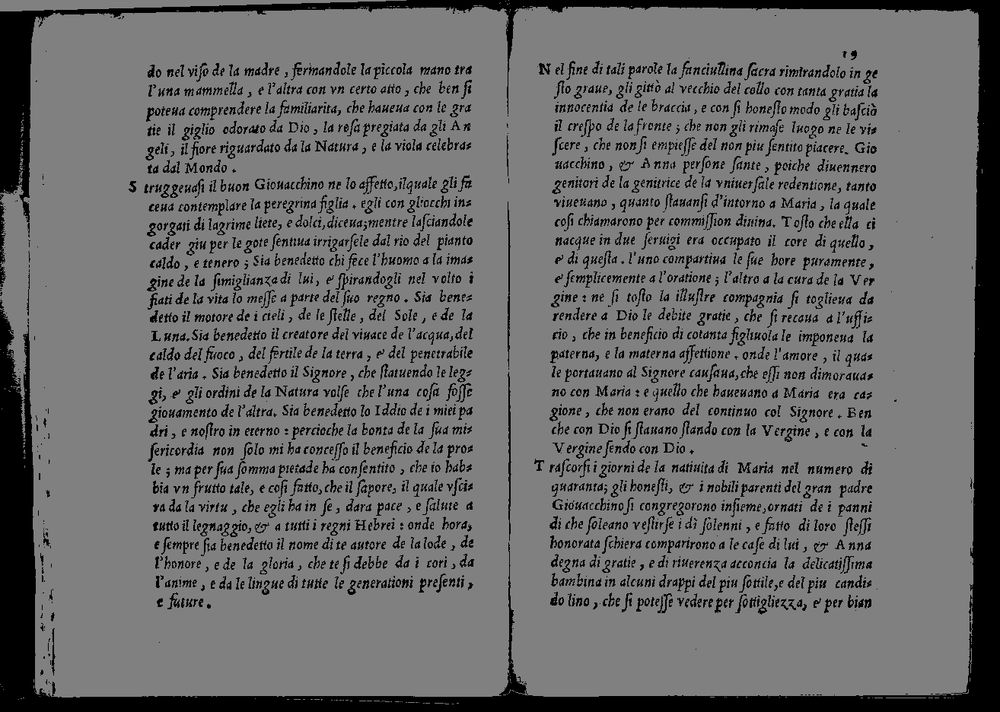 do nel viſo de la madre, fermandole la piccola mano tra
l'una mammella, e l'altra con vn certo atto, che ben ſi
poteua comprendere la familiarita, che haueua con le gra
tie il giglio odorato da Dio, la roſa pregiata da gli An
geli, il fiore riguardato da la Natura, e la viola celebra⸗
ta dal Mondo.
S truggeuaſi il buon Giouacchino ne lo affetto, ilquale gli fa
ceua contemplare la peregrina figlia. egli con gl'occhi in⸗
gorgati di lagrime liete, e dolci, diceua; mentre laſciandole
cader giu per le gote ſentiua irrigarſele dal rio del pianto
caldo, e tenero; Sia benedetto chi fece l'huomo a la ima⸗
gine de la ſimiglianza di lui, & ſpirandogli nel volto i
fiati de la vita lo meſſe a parte del ſuo regno. Sia bene⸗
detto il motore de i cieli, de le ſtelle, del Sole, e de la
Luna. Sia benedetto il creatore del viuace de l'acqua, del
caldo del fuoco, del fertile de la terra, & del penetrabile
de l'aria. Sia benedetto il Signore, che ſtatuendo le leg⸗
gi, & gli ordini de la Natura volſe che l'una coſa foſſe
giouamento de l'altra. Sia benedetto lo Iddio de i miei pa
dri, e noſtro in eterno: percioche la bonta de la ſua mi⸗
ſericordia non ſolo mi ha conceſſo il beneficio de la pro⸗
le; ma per ſua ſomma pietade ha conſentito, che io hab⸗
bia vn frutto tale, e coſi fatto, che il ſapore, il quale vſci⸗
ra da la virtu, che egli ha in ſe, dara pace, e ſalute a
tutto il legnaggio, & a tutti i regni Hebrei: onde hora,
e ſempre ſia benedetto il nome di te autore de la lode, de
l'honore, e de la gloria, che te ſi debbe da i cori, da
l'anime, e da le lingue di tutte le generationi preſenti,
e future.
19
N el fine di tali parole la fanciullina ſacra rimirandolo in ge
ſto graue, gli gittò al vecchio del collo con tanta gratia la
innocentia de le braccia, e con ſi honeſto modo gli baſciò
il creſpo de la fronte; che non gli rimaſe luogo ne le vi⸗
ſcere, che non ſi empieſſe del non piu ſentito piacere. Gio
uacchino, & Anna perſone ſante, poiche diuennero
genitori de la genitrice de la vniuerſale redentione, tanto
viueuano, quanto ſtauanſi d'intorno a Maria, la quale
coſi chiamarono per commiſſion diuina. Toſto che ella ci
nacque in due ſeruigi era occupato il core di quello,
& di queſta. l'uno compartiua le ſue hore puramente,
& ſemplicemente a l'oratione; l'altro a la cura de la Ver
gine: ne ſi toſto la illuſtre compagnia ſi toglieua da
rendere a Dio le debite gratie, che ſi recaua a l'uffi⸗
cio, che in beneficio di cotanta figliuola le imponeua la
paterna, e la materna affettione. onde l'amore, il qua⸗
le portauano al Signore cauſaua, che eſſi non dimoraua⸗
no con Maria: e quello che haueuano a Maria era ca⸗
gione, che non erano del continuo col Signore. Ben
che con Dio ſi ſtauano ſtando con la Vergine, e con la
Vergine ſendo con Dio.
T raſcorſi i giorni de la natiuita di Maria nel numero di
quaranta; gli honeſti, & i nobili parenti del gran padre
Giouacchino ſi congregorono inſieme, ornati de i panni
di che ſoleano veſtirſe i dì ſolenni, e fatto di loro ſteſſi
honorata ſchiera comparirono a le caſe di lui, & Anna
degna di gratie, e di riuerenza acconcia la delicatiſſima
bambina in alcuni drappi del piu ſottile, e del piu candi⸗
do lino, che ſi poteſſe vedere per ſottigliezza, & per bian